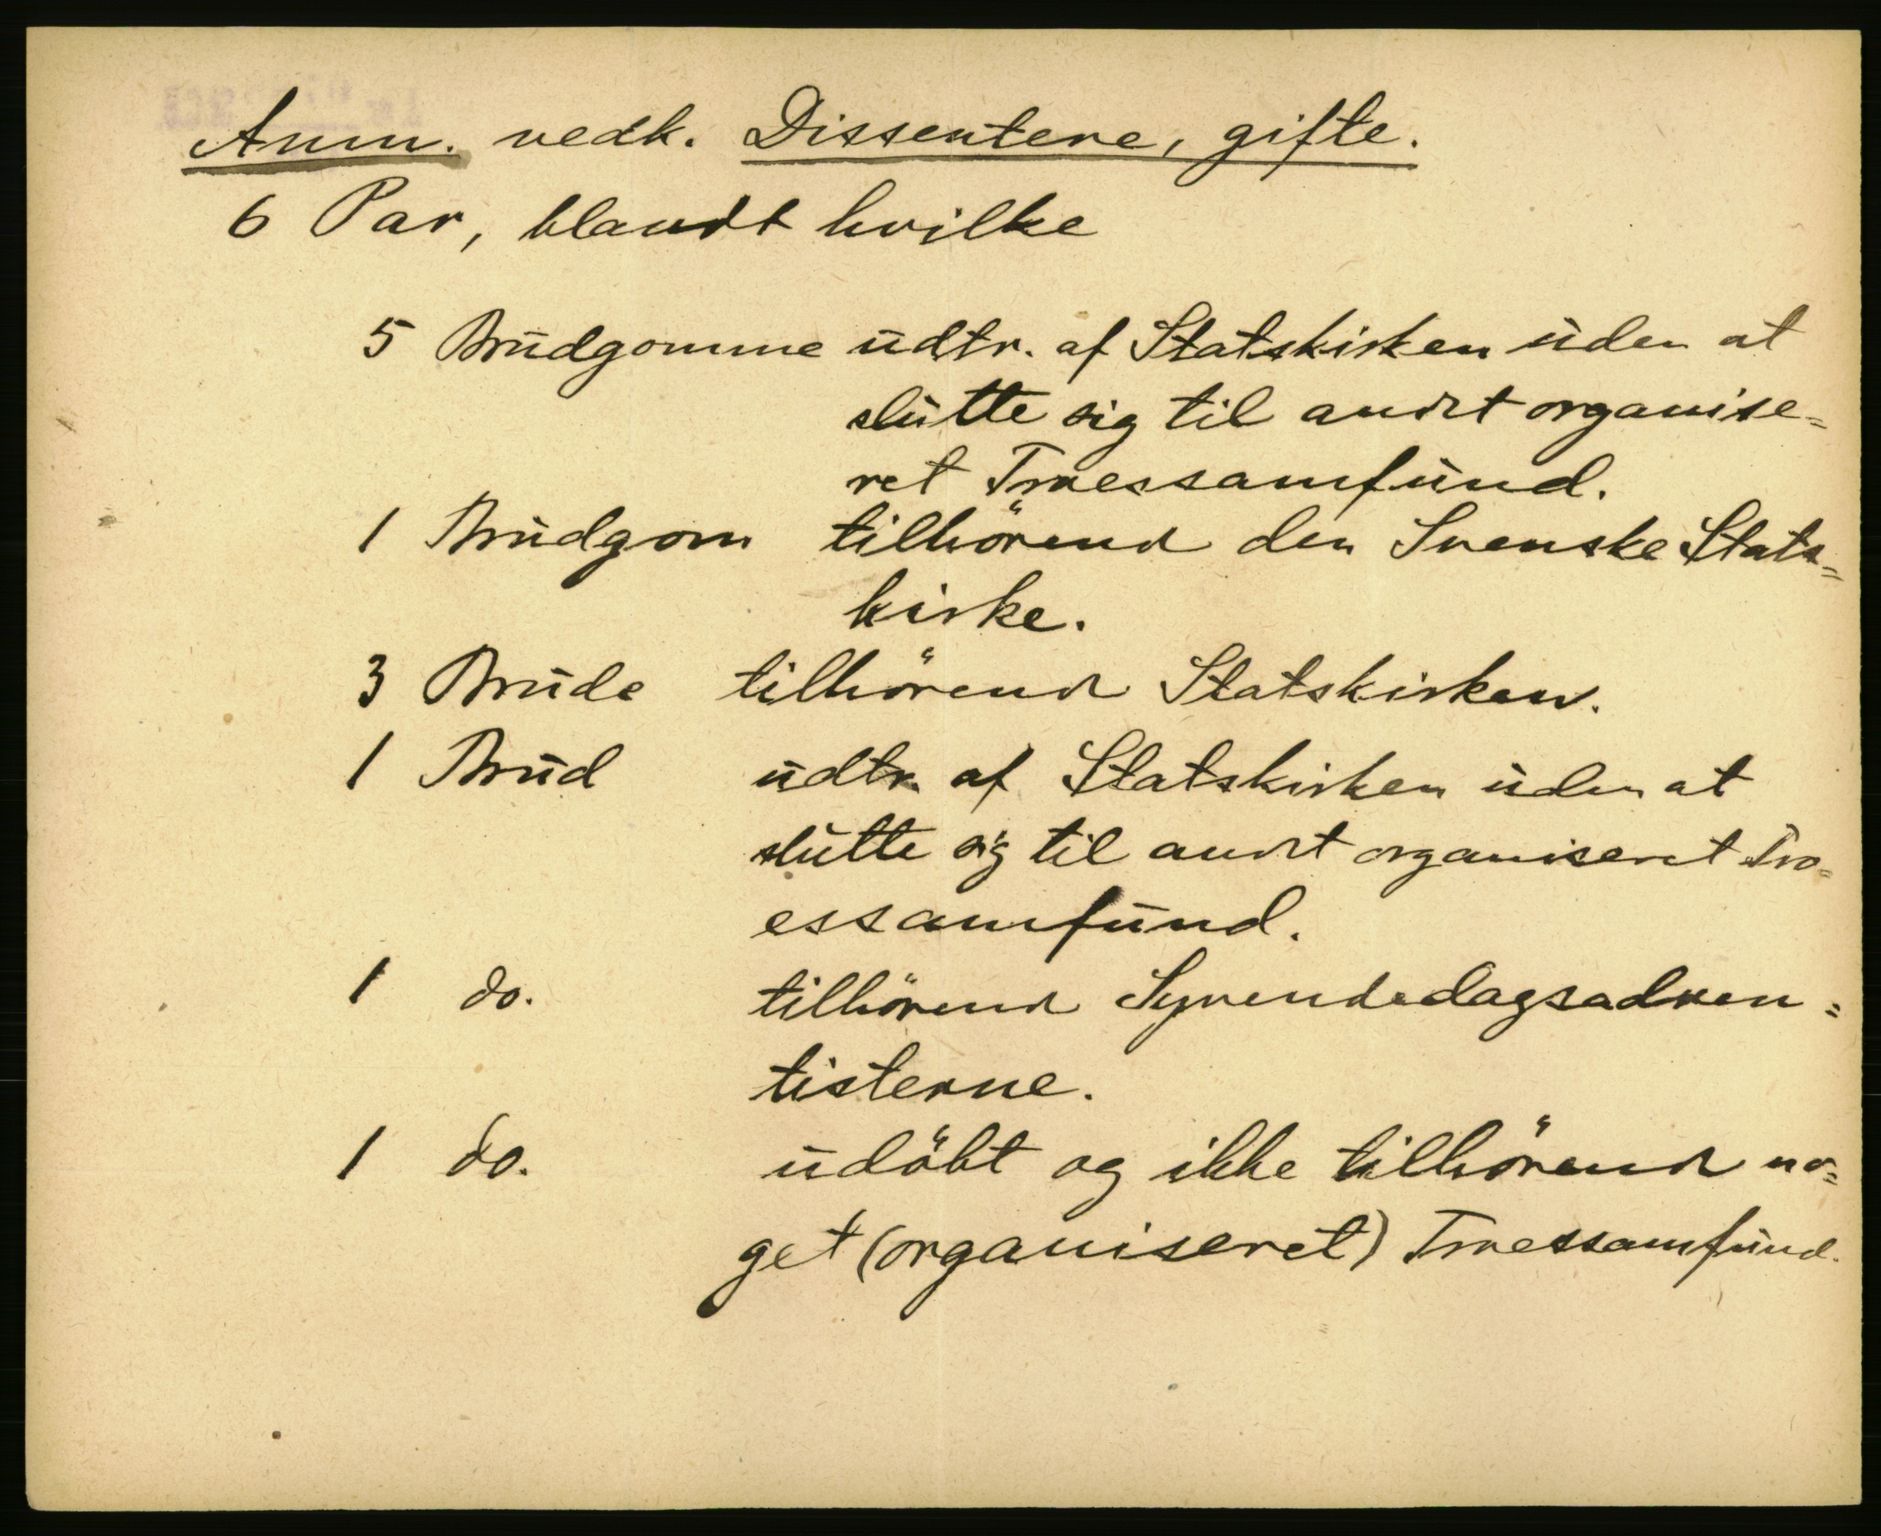 Anm. vedk. Dissentere, gifte.
6 Par, blandt hvilke
5 Brudgomme udtr. af Statskirken uden at
slutte sig til andet organise=
ret Troessamfund.
1 Brudgom tilhörende den Svenske Stats=
kirke.
3 Brude tilhörende Statskirken.
1 Brud udtr. af Statskirken uden at
slutte sig til andet organiseret Tro=
essamfund.
1 do. tilhörende Syvendedagsadven=
tisterne.
1 do. udöbt og ikke tilhörende no=
get (organiseret) Troessamfund.